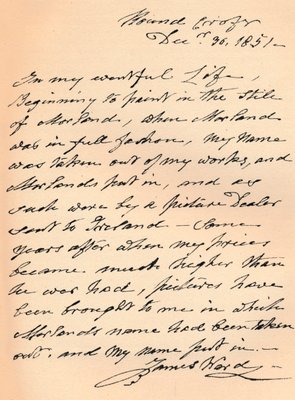 Round Croft
Decr. 30, 1851-
In my eventful Life,
Beginning to paint in the stile
of Morland, when Morland
was in full fashon, my name
was taken out of my works, and
Morlands put in, and as
such were by a picture Dealer
sent to Ireland — Some
years after when my prices
became much higher than
he ever had, pictures have
been brought to me in which
Morlands name had been taken
out. and my name put in.—
James Ward